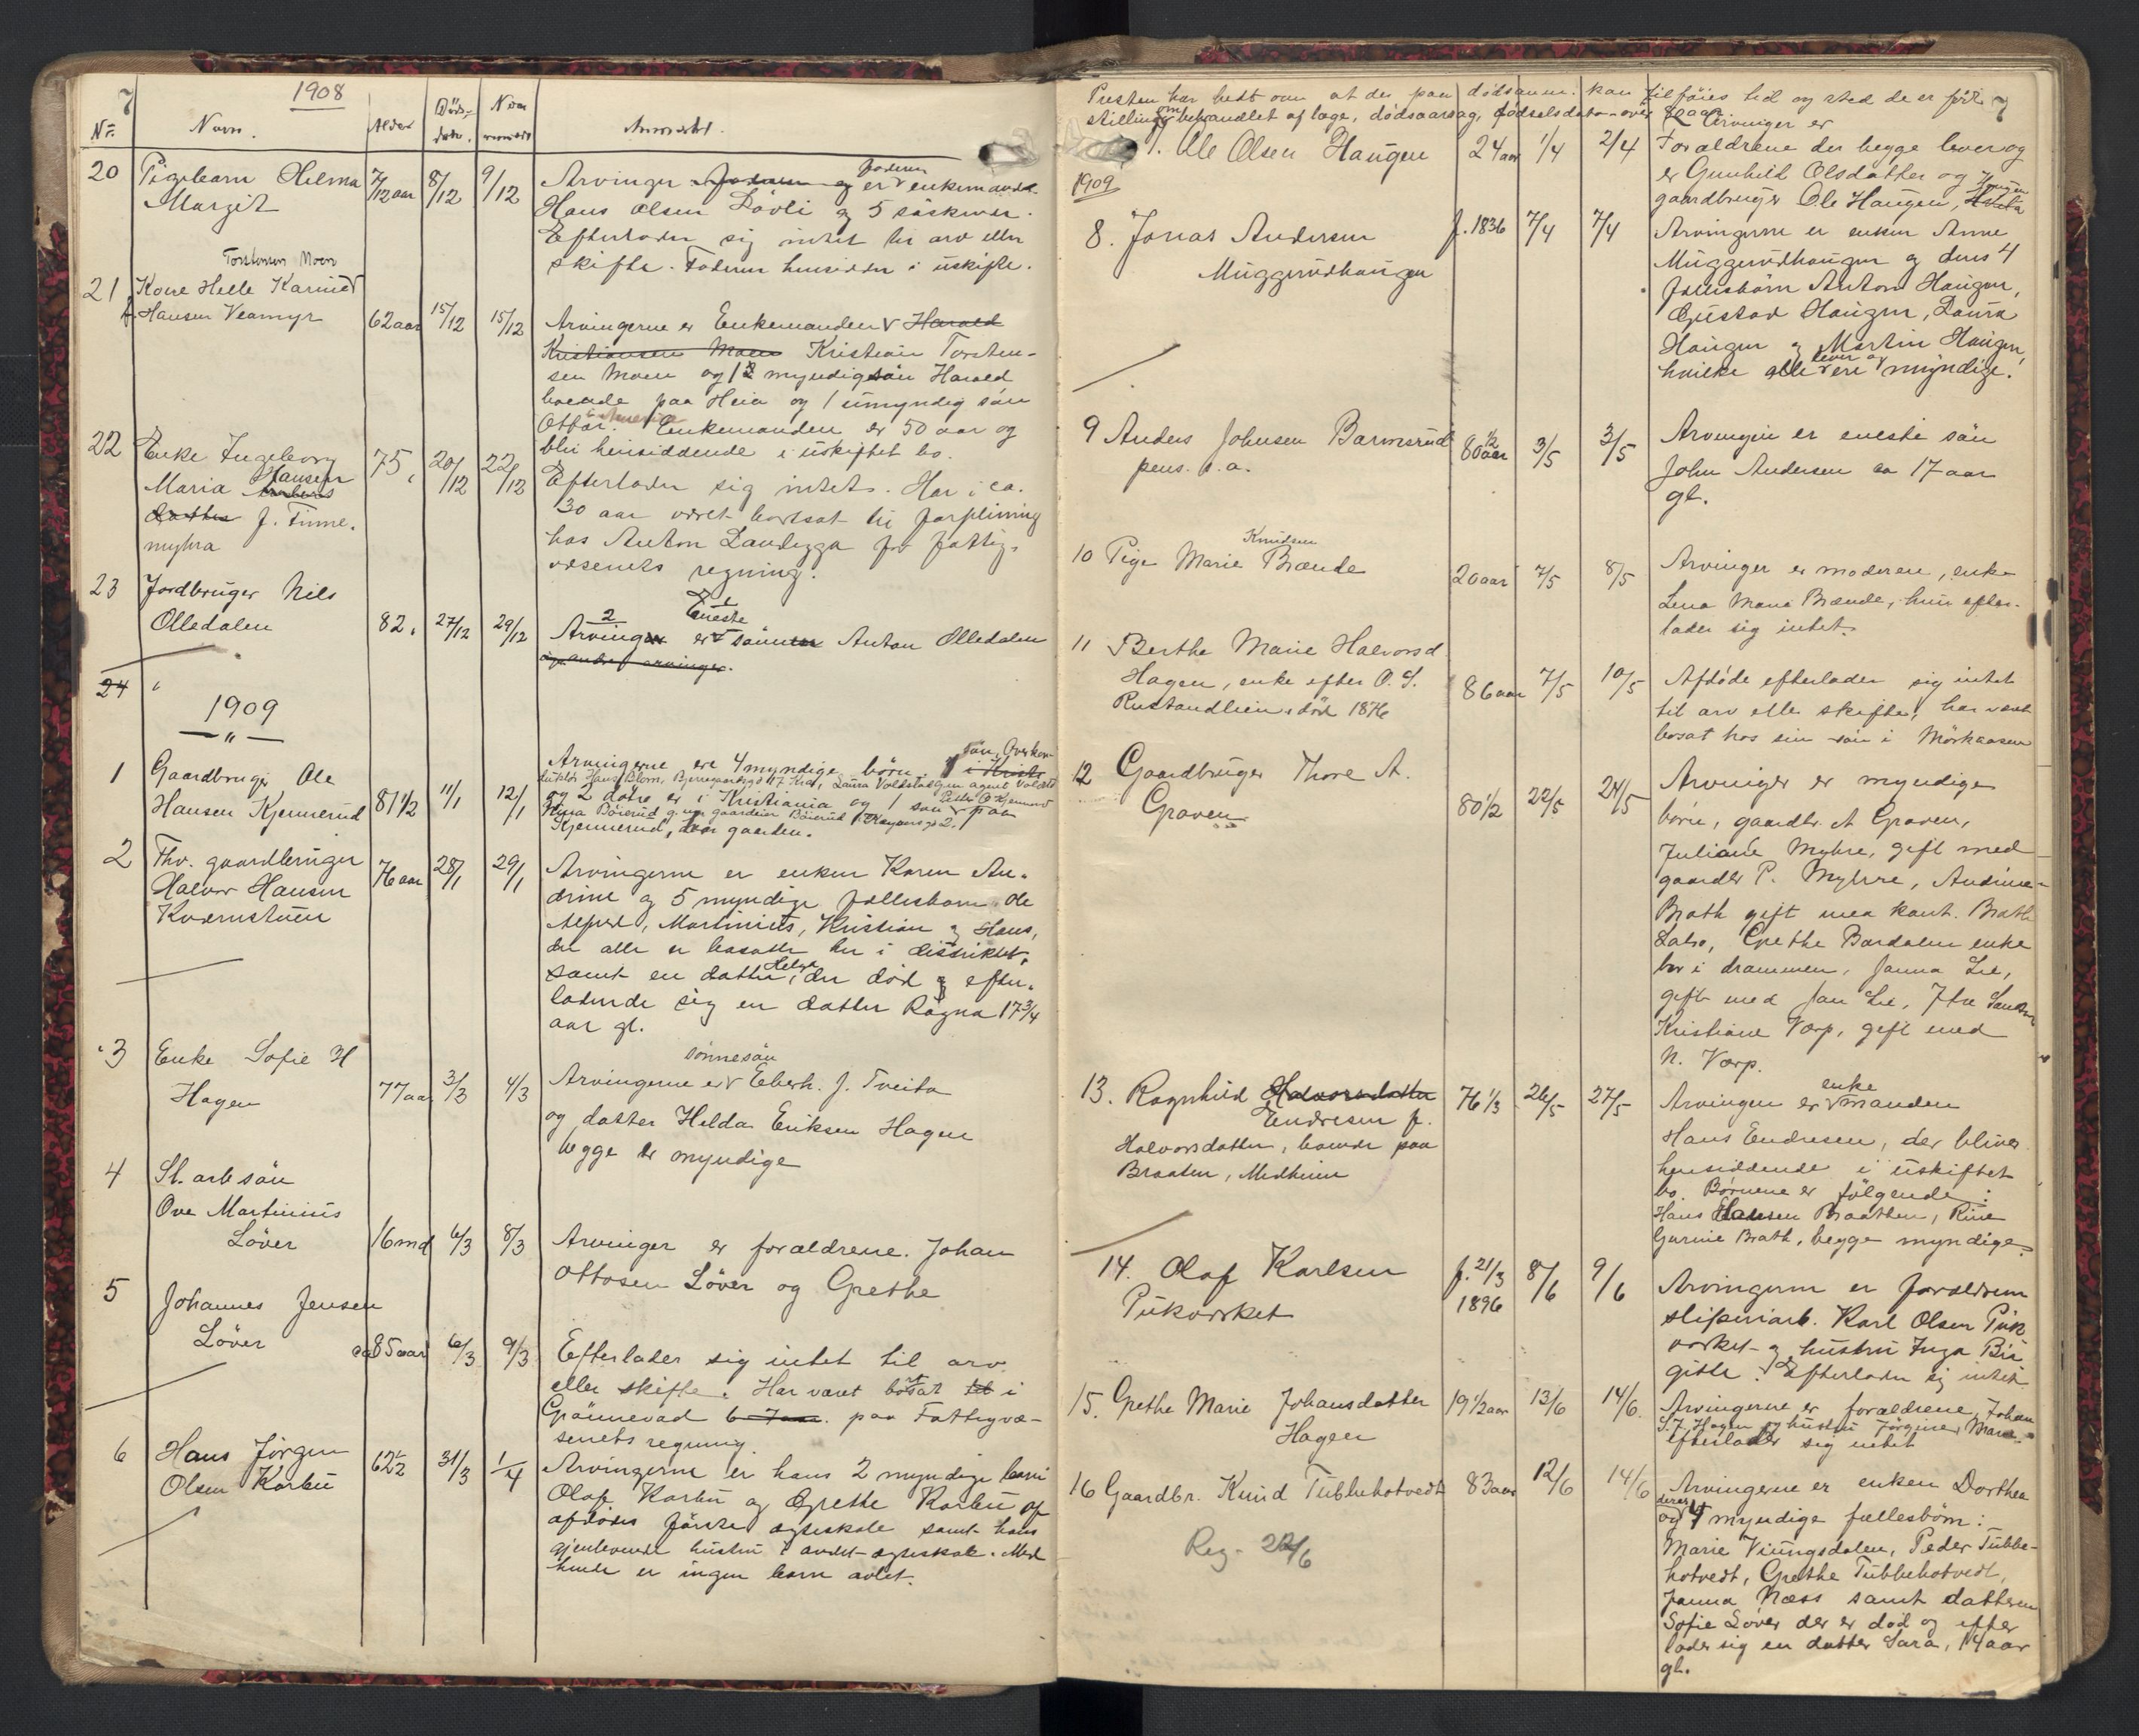 7
1908
Nr.
Navn.
Alder
Døds-
dato.
Anmerkt.
20
Pigebarn Helma
Margit
7/12 aar
8/12
9/12
Arvinger er faderen enkemand
Hans Olsen Løvli og 5 søskener.
Efterlader sig intet til arv eller
skifte. Faderen hensidder i uskifte.
Torstensen Moen
21
Kone Helle Karine
f. Hansen Veamyr
62 aar
15/12
15/12
Arvingerne er Enkemanden Harald
Kristiansen Moen Kristian Torsten-
sen Moen og 1 myndig søn Harald
boende paa Heia og 1 umyndig søn
Ottar. Enkemanden er 50 aar og
bli hensiddende i uskiftet bo.
22
Enke Ingeborg
Maria Hansen
datter f. Finne-
myhra
75
20/12
22/12
Efterlader sig intet. Har i ca.
30 aar været bortsat til forpleining
hos Anton Landegga for fattig-
væsenets regning.
23
Jordbruger Nils
Olledalen
82
27/12
29/12
Eneste
Arving er sønnen Anton Olledalen
24
1909
1
Gaardbruger Ole
Hansen Kjennerud
81 1/2
11/1
12/1
Arvingerne ere 4 myndige børn. 1 søn, Overkon-
og 2 døtre er i Kristiania og 1 søn paa
Kjennerud, gaarden.
2
Fhv. gaardbruger
Halvor Hansen
Kvernstuen
76 aar
28/1
29/1
Arvingerne er enken Karen An-
drine og 5 myndige fællesbarn Ole
Alfred, Martinius, Kristian og Hans,
der alle er bosatte her i distriktet,
samt en datter Helga, der død og efter-
ladende sig en datter Ragna 17 3/4
aar gl.
3
Enke Sofie H
Hagen
77 aar
3/3
4/3
sønnesøn
Arvingerne er Eberh. J. Tveita
og datter Helda Eriksen Hagen
begge er myndige
4
Sl. arb søn
Ove Martinius
Løver
16 md
6/3
8/3
Arvinger er forældrene. Johan
Ottosen Løver og Grethe
5
Johannes Jensen
Løver
ca 85 aar
6/3
9/3
Efterlader sig intet til arv
eller skifte. Har været bortsat til i
Grønnevad paa Fattigvæ-
senets regning.
6
Hans Jørgen
Olsen Karbu
62 1/2
31/3
1/4
Arvingerne er hans 2 myndige barn
Olaf Karbu og Grethe Karbu af
afdødes første ægteskab samt hans
gjenlevende hustru i andet ægteskab. Med
hende er ingen barn avlet.
Presten har bedt om at der paa dødsanm. kan tilføies tid og sted de er født
stilling, om behandlet af læge, dødsaarsag, fødselsdato over 80 aar
7
7. Ole Olsen Haugen
24 aar
1/4
2/4
Arvinger er
Forældrene der begge lever og
er Gunhild Olsdatter og
gaardbruger Ole Haugen,
1909
8. Jonas Andersen
Muggerudhaugen
f. 1836
7/4
7/4
Arvingerne er enken Anne
Muggerudhaugen og deres 4
fællesbørn Anton Haugen,
Gustav Haugen, Laura
Haugen og Martin Haugen,
hvilke alle lever og ere myndige.
9 Anders Johnsen Barmsrud
pens. s.a.
80 1/2 aar
3/5
3/5
Arvingen er eneste søn
John Andersen ca 17 aar
gl.
Knudsen
10 Pige Marie Brænde
20 aar
7/5
8/5
Arvinger er moderen, enke
Lena Marie Brænde, hun efter-
lader sig intet.
11 Berthe Marie Halvorsd
Hagen, enke efter O. S.
Rustandlien død 1876
86 aar
7/5
10/5
Afdøde efterlader sig intet
til arv eller skifte, har været
bosat hos sin søn i Mørkaasen
12 Gaardbruger Thore A.
Graven
80 1/2
22/5
24/5
Arvinger er myndige
børn, gaardbr. A Graven,
Juliane Myhre, gift med
gaardbr P. Myhrre, Andrine
Brath gift med kant. Brath
Grethe Bardalen enke
bor i drammen, Janna Lie,
gift med Jan Lie,
Kristiane Vorp, gift med
N. Vorp.
13. Ragnhild Halvorsdatter
Endresen f.
Halvorsdatter, boende paa
Braaten, Medheien
76 1/3
26/5
27/5
Arvingen er enkemanden
Hans Endresen, der bliver
hensiddende i uskiftet
bo. Børnene er følgende:
Hans Hansen Braatten,
Gurine Brath, begge myndige.
14. Olaf Karlsen
Pukverket
f. 21/3
1896
8/6
9/6
Arvingerne er forældrene
sliperiarb. Karl Olsen Puk
verket og hustru Inga Bir
gitte. Efterlader sig intet.
15. Grethe Marie Johansdatter
Hagen
19 1/2 aar
13/6
14/6
Arvingerne er forældrene Johan
S. J. Hagen og hustru Jørgine Marie
efterlader sig intet
16 Gaardbr. Knud Tubbehotvedt
83 aar
12/6
14/6
Reg. 22/6
Arvingerne er enken Dorthea
og deres 4 myndige fællesbørn:
Marie Viungsdalen, Peder Tubbe-
hotvedt, Grethe Tubbehotvedt,
Janna Næss samt datteren
Sofie Løver der er død og efter
lader sig en datter Sara, 14 aar
gl.